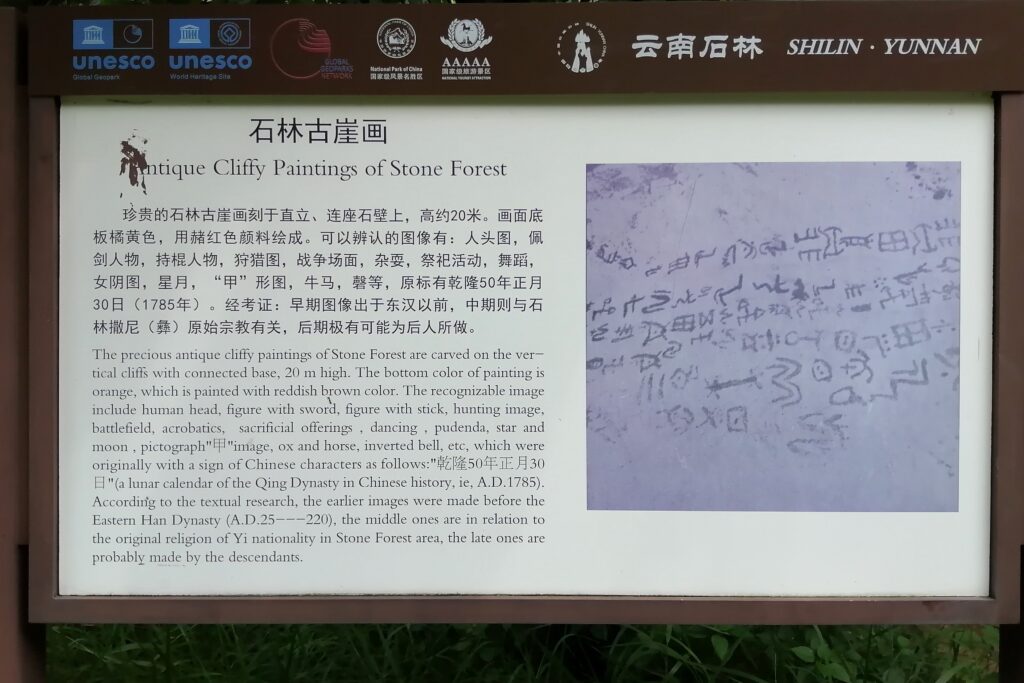 unesco
Global Geopark
unesco
World Heritage Site
GLOBAL
GEOPARKS
NETWORK
National Park of China
国家级风景名胜区
AAAAA
国家级旅游景区
NATIONAL TOURIST ATTRACTION
云南石林
SHILIN · YUNNAN
石林古崖画
ntique Cliffy Paintings of Stone Forest
珍贵的石林古崖画刻于直立、连座石壁上，高约20米。画面底
板橘黄色，用赭红色颜料绘成。可以辨认的图像有：人头图，佩
剑人物，持棍人物，狩猎图，战争场面，杂耍，祭祀活动，舞蹈，
女阴图，星月，“甲”形图，牛马，磬等，原标有乾隆50年正月
30日（1785年）。经考证：早期图像出于东汉以前，中期则与石
林撒尼（彝）原始宗教有关，后期极有可能为后人所做。
The precious antique cliffy paintings of Stone Forest are carved on the ver-
tical cliffs with connected base, 20 m high. The bottom color of painting is
orange, which is painted with reddish brown color. The recognizable image
include human head, figure with sword, figure with stick, hunting image,
battlefield, acrobatics, sacrificial offerings , dancing , pudenda, star and
moon , pictograph"甲"image, ox and horse, inverted bell, etc, which were
originally with a sign of Chinese characters as follows:"乾隆50年正月30
日"(a lunar calendar of the Qing Dynasty in Chinese history, ie, A.D.1785).
According to the textual research, the earlier images were made before the
Eastern Han Dynasty (A.D.25---220), the middle ones are in relation to
the original religion of Yi nationality in Stone Forest area, the late ones are
probably made by the descendants.